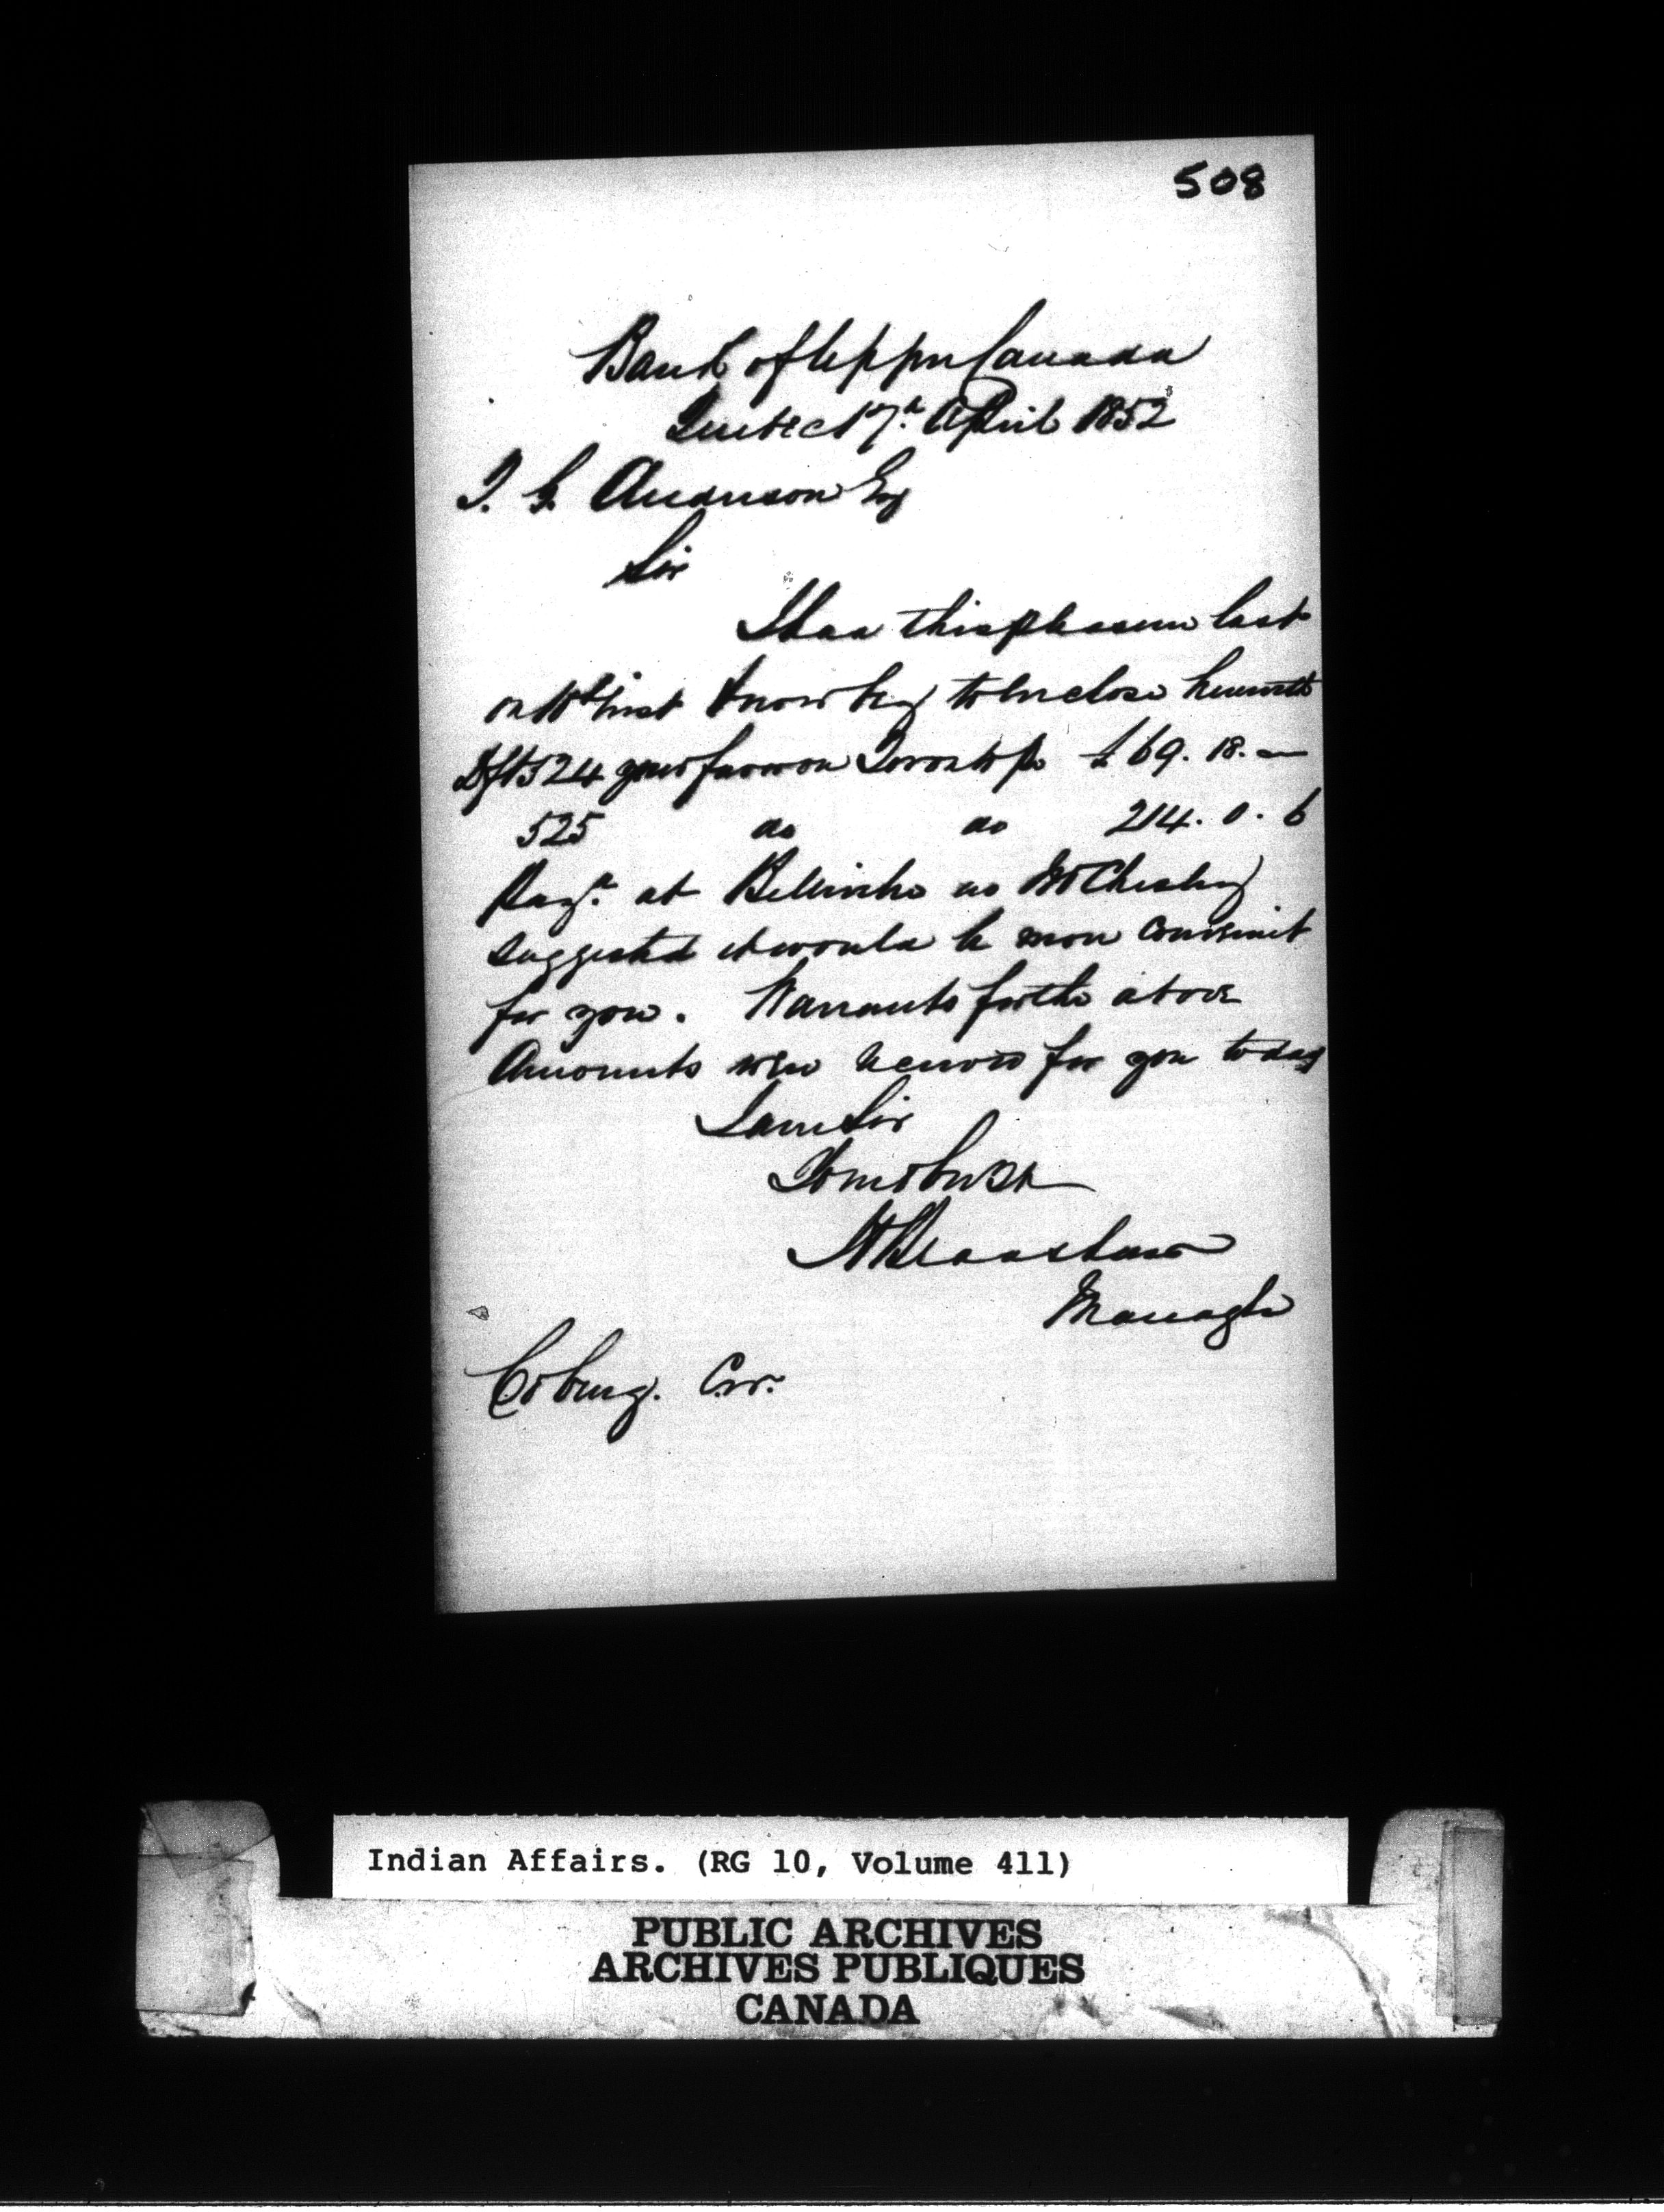 508
Bank of Upper Canada
Quebec 17th April 1852
T. G. Anderson Esq
Sir
I had this pleasure last
on 10th inst & now beg to enclose herewith
Dft 524 your favor on Toronto for £69. 18. –
525 do do 214. 0. 6
Pay. at Belleville as Mr Chesley
suggested it would be more convenient
for you. Warrants for the above
Amounts were received for you to day
I am Sir
Your ob Svt
Manager
Cobourg. C.W.
Indian Affairs. (RG 10, Volume 411)
PUBLIC ARCHIVES
ARCHIVES PUBLIQUES
CANADA